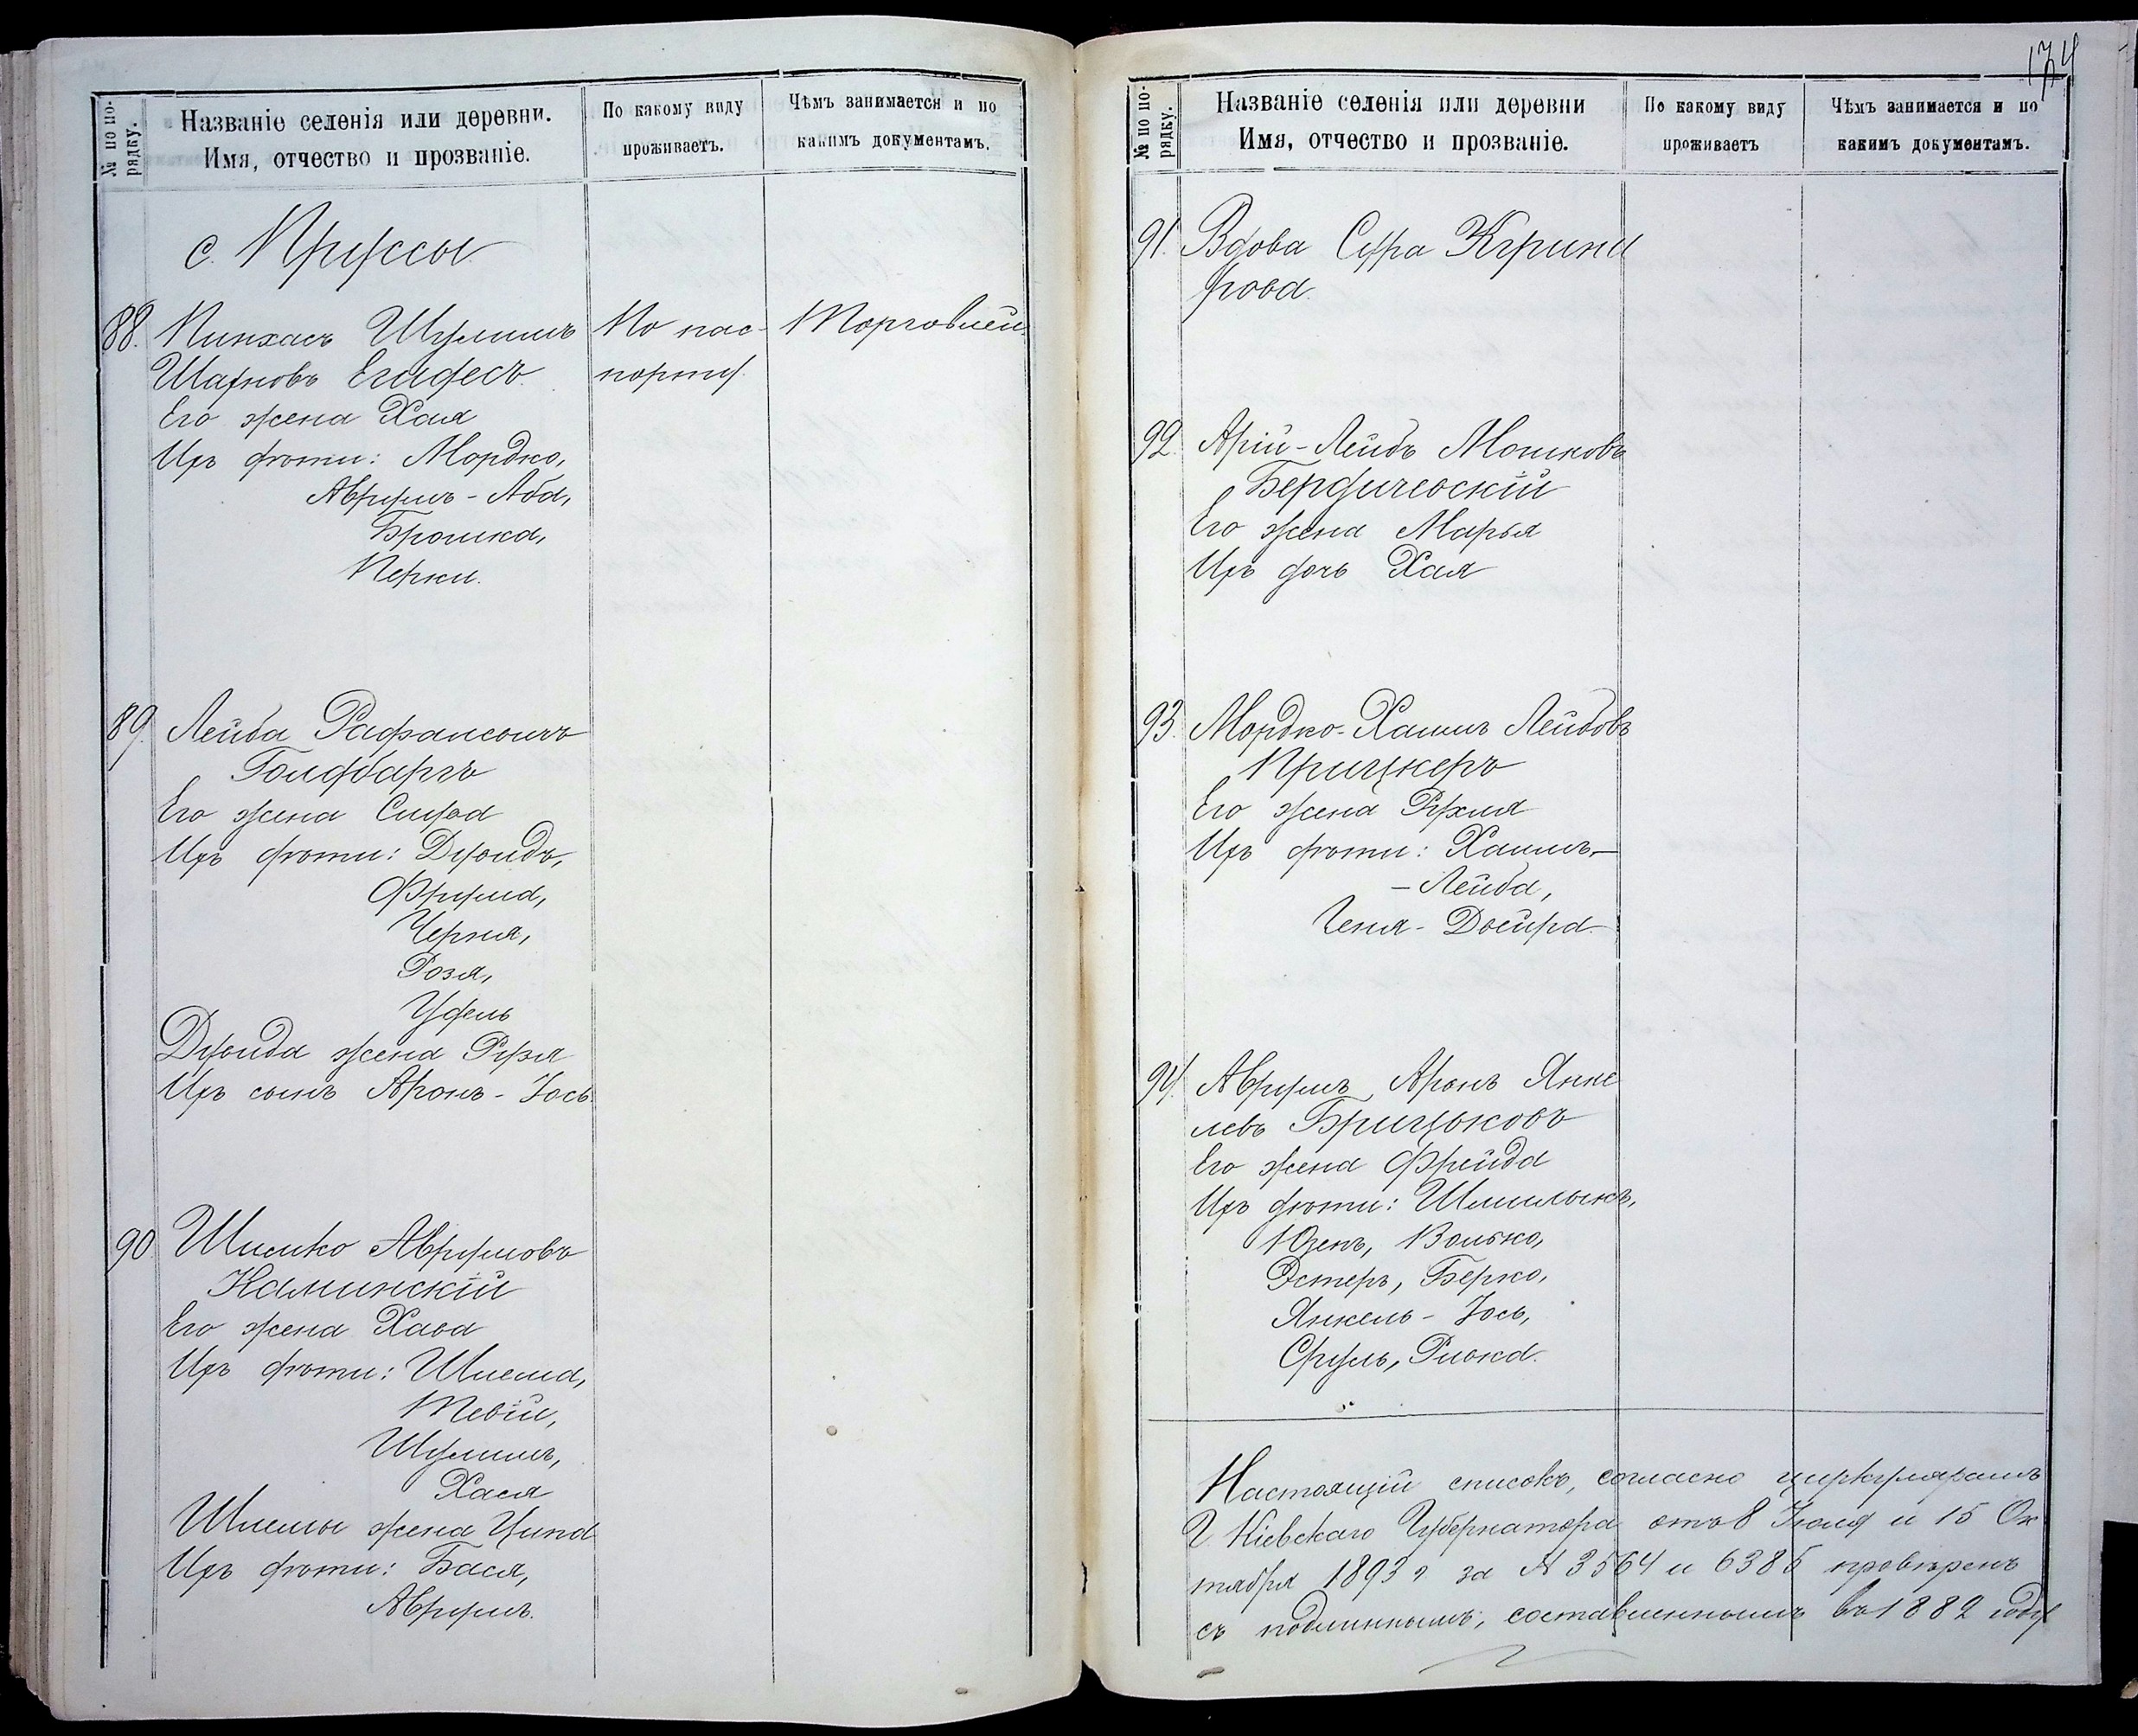 № по по-
рядку.
Названіе селенія или деревни.
Имя, отчество и прозваніе.
По какому виду
проживаетъ.
Чѣмъ занимается и по
какимъ документамъ.
с. Пруссы
88. Пинхасъ Шулимъ По пас- Торговлей.
Шаповъ Егидесъ. порту.
Его жена Хая
Ихъ дѣти: Мордко,
Аврумъ-Аба,
Брошка,
Перки.
89. Лейба Рафаиловъ
Голдбаргъ
Его жена Сиѳа
Ихъ дѣти: Дувидъ,
Фрума,
Черня,
Розя,
Удель
Дувида жена Рухля
Ихъ сынъ Аронъ-Іось.
90. Шмилко Аврумовъ
Каминскій
Его жена Хава
Ихъ дѣти: Шлема,
Тевій,
Шулимъ,
Хася
Шлемы жена Ципа
Ихъ дѣти: Бася,
Аврумъ.
174
№ по по-
рядку.
Названіе селенія или деревни
Имя, отчество и прозваніе.
По какому виду
проживаетъ
Чѣмъ занимается и по
какимъ документамъ.
91. Вдова Сура
92. Арій-Лейбъ Мошковъ
Бердичевскій
Его жена Марья
Ихъ дочь Хая
93. Мордко-Хаимъ Лейбовъ
Прицкеръ
Его жена Рухля
Ихъ дѣти: Хаимъ-
-Лейба,
Геня-Двейра.
94. Аврумъ Аронъ Янке
левъ Брицьковъ
Его жена Фрейда
Ихъ дѣти: Шмилыкъ,
Юзепъ, Волько,
Эстеръ, Берко,
Янкель-Іось,
Сруль, Ривка.
Настоящій списокъ, согласно циркулярамъ
Г. Кіевскаго Губернатора отъ 8 Іюля и 15 Ок
тября 1893 г за № 3564 и 6385 провѣренъ
съ подлиннымъ, составленнымъ въ 1882 году